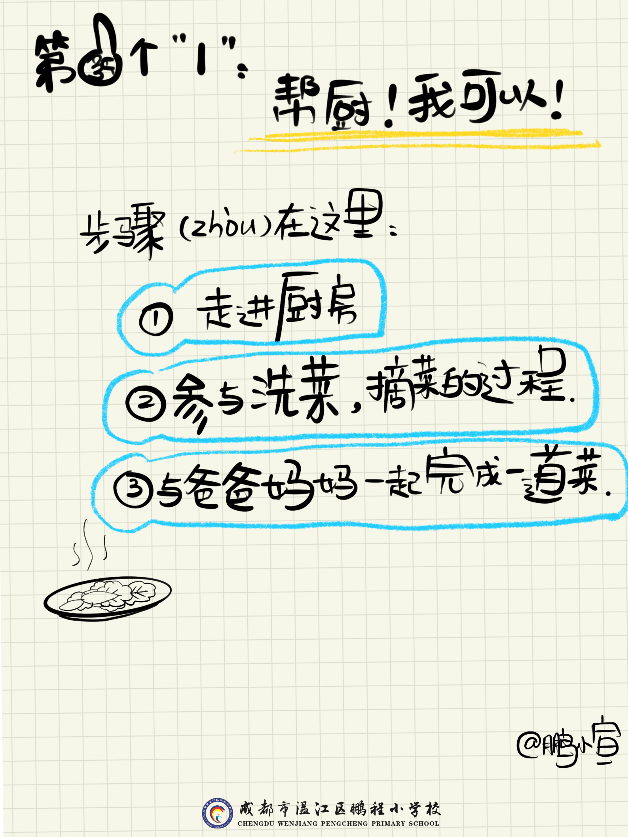 第35个“1”：
帮厨！我可以！
步骤（zhòu）在这里：
① 走进厨房
② 参与洗菜，摘菜的过程.
③ 与爸爸妈妈一起完成一道菜.
@鹏小宣
成都市温江区鹏程小学校
CHENGDU WENJIANG PENGCHENG PRIMARY SCHOOL